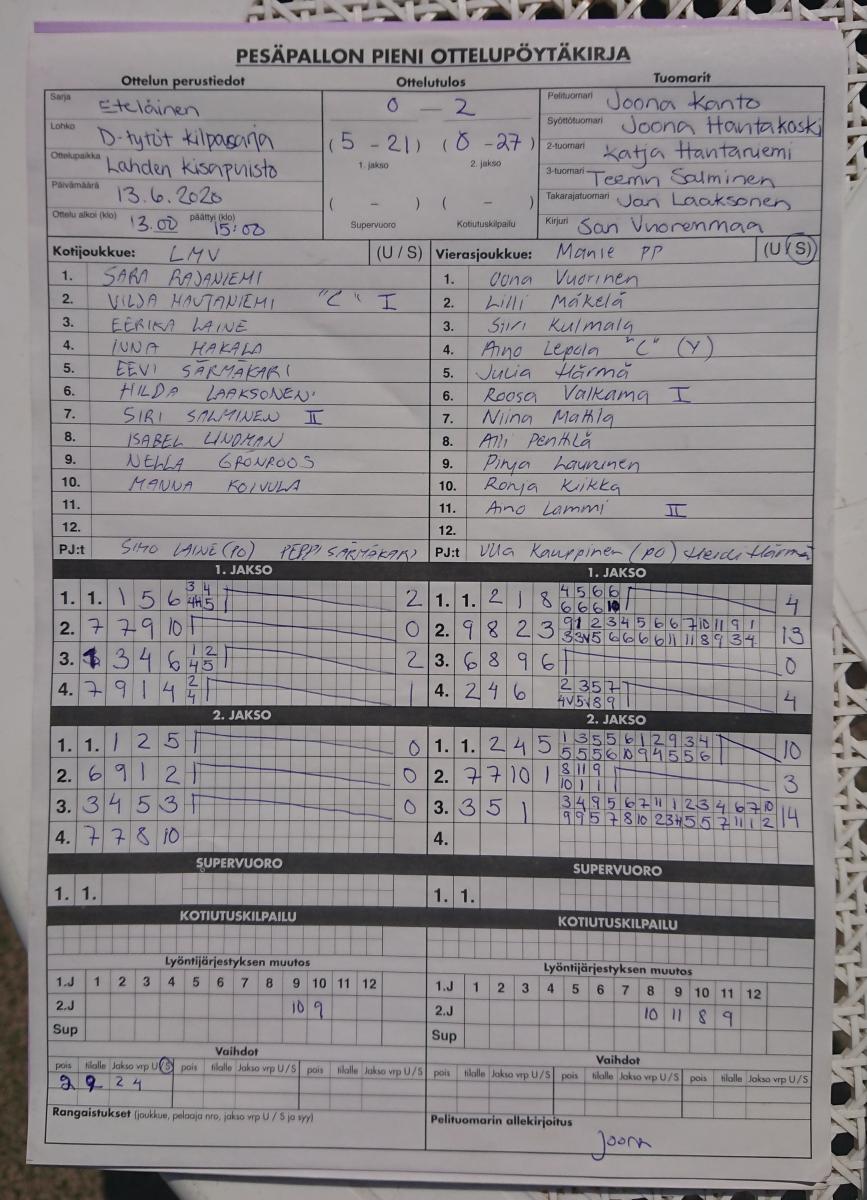 PESÄPALLON PIENI OTTELUPÖYTÄKIRJA
Ottelun perustiedot Ottelutulos Tuomarit
Sarja Eteläinen
Lohko D-tytöt kilpasarja
Ottelupaikka Lahden Kisapuisto
Päivämäärä 13.6.2020
Ottelu alkoi (klo) 13.00 päättyi (klo) 15:00
0 – 2
(5 – 21) (0 – 27)
1. jakso 2. jakso
( – ) ( – )
Supervuoro Kotiutuskilpailu
Pelituomari Joona Kanto
Syöttötuomari Joona Hantakoski
2-tuomari Katja Hantaniemi
3-tuomari Teemu Salminen
Takarajatuomari Jari Laaksonen
Kirjuri Sari Vuorenmaa
Kotijoukkue: LMV (U / S)
1. SARA RAJANIEMI
2. VILJA HAUTANIEMI "C" I
3. EERIKA LAINE
4. INNA HAKALA
5. EEVI SÄRMÄKARI
6. HILDA LAAKSONEN
7. SIRI SALMINEN II
8. ISABEL LINDMAN
9. NELLA GRÖNROOS
10. MANNA KOIVULA
11.
12.
PJ:t SIMO LAINE (PO) PEPPI SÄRMÄKARI
Vierasjoukkue: Manse PP (U / S)
1. Oona Vuorinen
2. Lilli Mäkelä
3. Siiri Kulmala
4. Aino Lepola "C" (Y)
5. Julia Härmä
6. Roosa Valkama I
7. Niina Mattila
8. Alli Penttilä
9. Pinja Launinen
10. Ronja Kiikka
11. Aino Lammi II
12.
PJ:t Ulla Kauppinen (PO) Heidi Härmä
1. JAKSO
1. 1. 1 5 6 3 4 2
2. 7 7 9 10 0
3. 1 3 4 6 1 2 4 5 2
4. 7 9 1 4 2 4 1
1. JAKSO
1. 1. 2 1 8 4 5 6 6 4
6 6 6 10
2. 9 8 2 3 9 1 2 3 4 5 6 6 7 10 11 9 1 13
3. 6 8 9 6 0
4. 2 4 6 2 3 5 7 4
2. JAKSO
1. 1. 1 2 5 0
2. 6 9 1 2 0
3. 3 4 5 3 0
4. 7 7 8 10
2. JAKSO
1. 1. 2 4 5 1 3 5 5 6 1 2 9 3 4 10
5 5 5 6 10 9 4 5 5 6
2. 7 7 10 1 8 11 9 3
10 1 1
3. 3 5 1 3 4 9 5 6 7 11 1 2 3 4 6 7 10 14
4.
SUPERVUORO
1. 1.
SUPERVUORO
1. 1.
KOTIUTUSKILPAILU
KOTIUTUSKILPAILU
Lyöntijärjestyksen muutos
1.J 1 2 3 4 5 6 7 8 9 10 11 12
2.J 10 9
Sup
Lyöntijärjestyksen muutos
1.J 1 2 3 4 5 6 7 8 9 10 11 12
2.J 10 11 8 9
Sup
Vaihdot
pois tilalle Jakso vrp U/S pois tilalle Jakso vrp U/S pois tilalle Jakso vrp U/S
2 9 2 4
Vaihdot
pois tilalle Jakso vrp U/S pois tilalle Jakso vrp U/S pois tilalle Jakso vrp U/S
Rangaistukset (joukkue, pelaaja nro, jakso vrp U / S ja syy)
Pelituomarin allekirjoitus
Joona